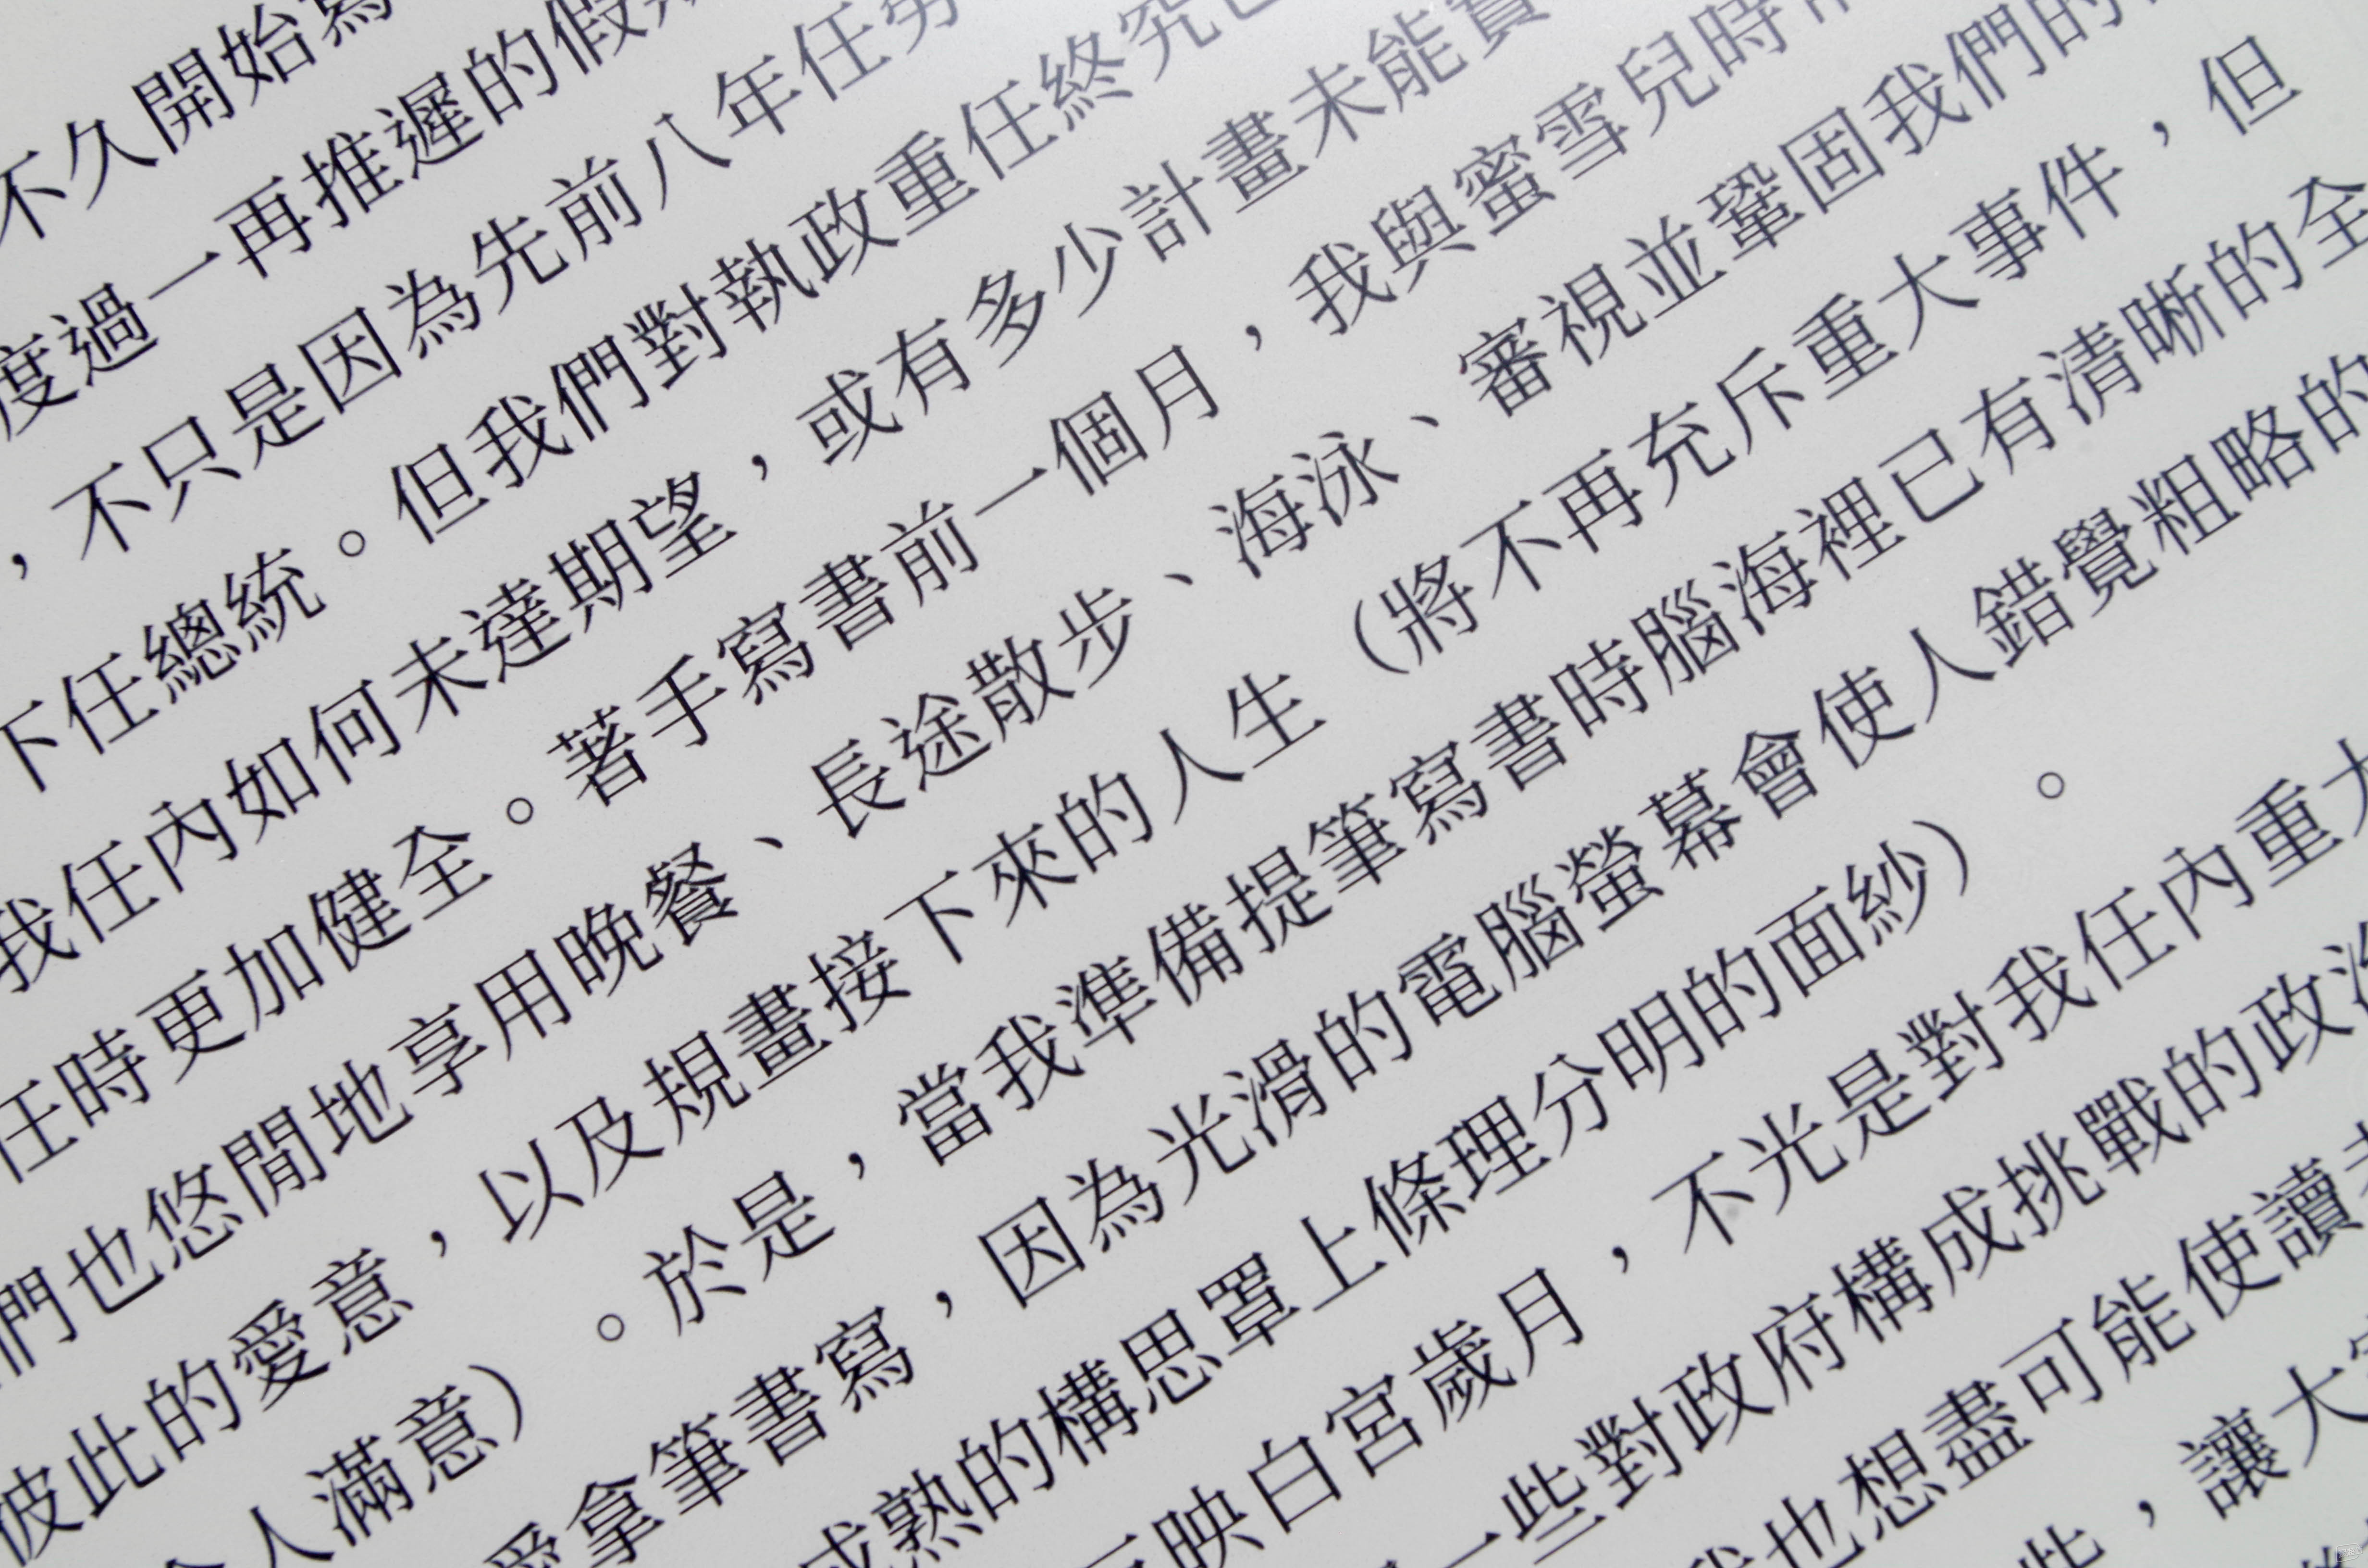 不久開始寫
度過一再推遲的假
，不只是因為先前八年任勞
下任總統。但我們對執政重任終究
我任內如何未達期望，或有多少計畫未能實
任時更加健全。著手寫書前一個月，我與蜜雪兒時
們也悠閒地享用晚餐、長途散步、海泳、審視並鞏固我們的
彼此的愛意，以及規畫接下來的人生（將不再充斥重大事件，但
人滿意）。於是，當我準備提筆寫書時腦海裡已有清晰的全
愛拿筆書寫，因為光滑的電腦螢幕會使人錯覺粗略的
成熟的構思罩上條理分明的面紗）。
反映白宮歲月，不光是對我任內重大
一些對政府構成挑戰的政治
我也想盡可能使讀者
些，讓大家